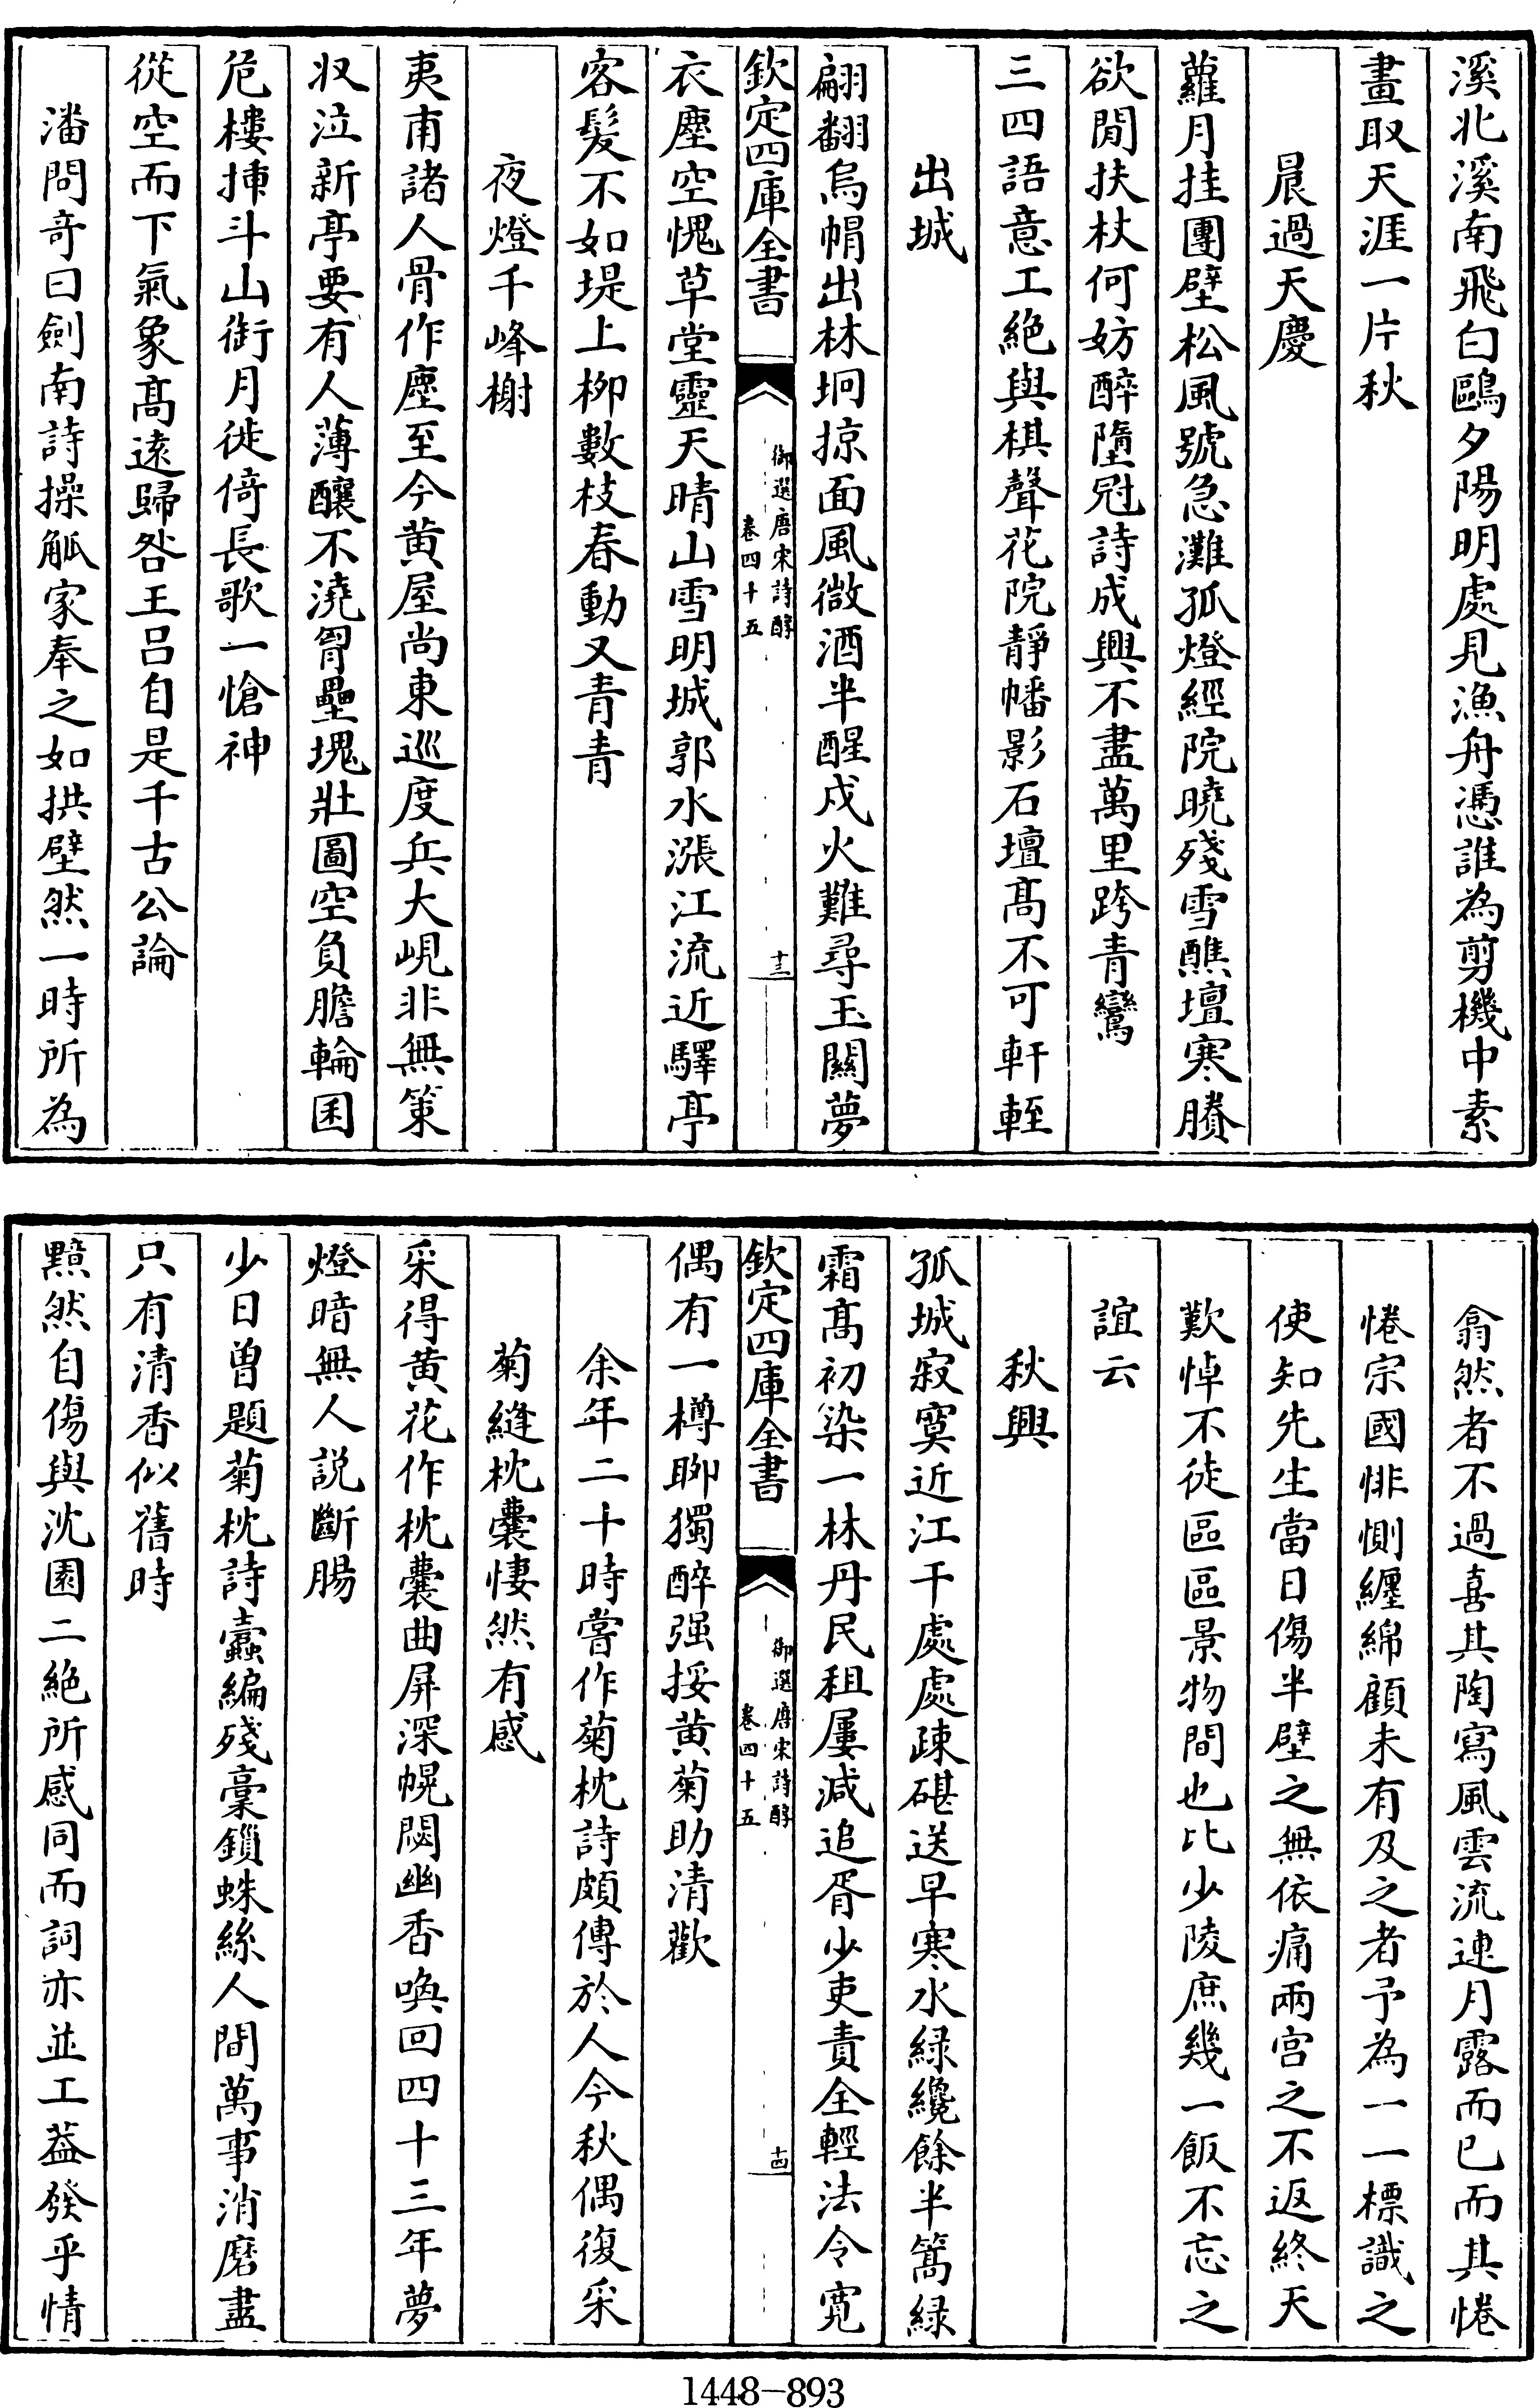 溪北溪南飛白鷗夕陽明處見漁舟憑誰為剪機中素
畫取天涯一片秋
晨過天慶
蘿月挂團壁松風號急灘孤燈經院曉殘雪醮壇寒賸
欲閒扶杖何妨醉墮冠詩成興不盡萬里跨青鸞
三四語意工絶與棋聲花院靜幡影石壇髙不可軒輊
出城
翩翻烏帽出林坰掠面風微酒半醒戍火難尋玉關夢
欽定四庫全書
御選唐宋詩醇
卷四十五
十三
衣塵空愧草堂靈天晴山雪明城郭水漲江流近驛亭
客髮不如堤上柳數枝春動又青青
夜燈千峰榭
夷甫諸人骨作塵至今黄屋尚東巡度兵大峴非無策
収泣新亭要有人薄釀不澆胷壘塊壯圖空負膽輪囷
危樓揷斗山銜月徙倚長歌一愴神
從空而下氣象髙遠歸咎王吕自是千古公論
潘問奇曰劍南詩操觚家奉之如拱璧然一時所為
翕然者不過喜其陶寫風雲流連月露而已而其惓
惓宗國悱惻纒綿顧未有及之者予為一一標識之
使知先生當日傷半壁之無依痛兩宫之不返終天
歎悼不徒區區景物間也比少陵庶幾一飯不忘之
誼云
秋興
孤城寂寞近江干處處疎碪送早寒水緑纔餘半篙緑
霜髙初染一林丹民租屢減追胥少吏責全輕法令寛
欽定四庫全書
御選唐宋詩醇
卷四十五
十四
偶有一樽聊獨醉强挼黄菊助清歡
余年二十時嘗作菊枕詩頗傳於人今秋偶復采
菊縫枕囊悽然有感
采得黄花作枕囊曲屏深幌閟幽香喚回四十三年夢
燈暗無人說斷腸
少日曽題菊枕詩蠹編殘稾鎻蛛絲人間萬事消磨盡
只有清香似舊時
黯然自傷與沈園二絶所感同而詞亦並工葢發乎情
1448-893